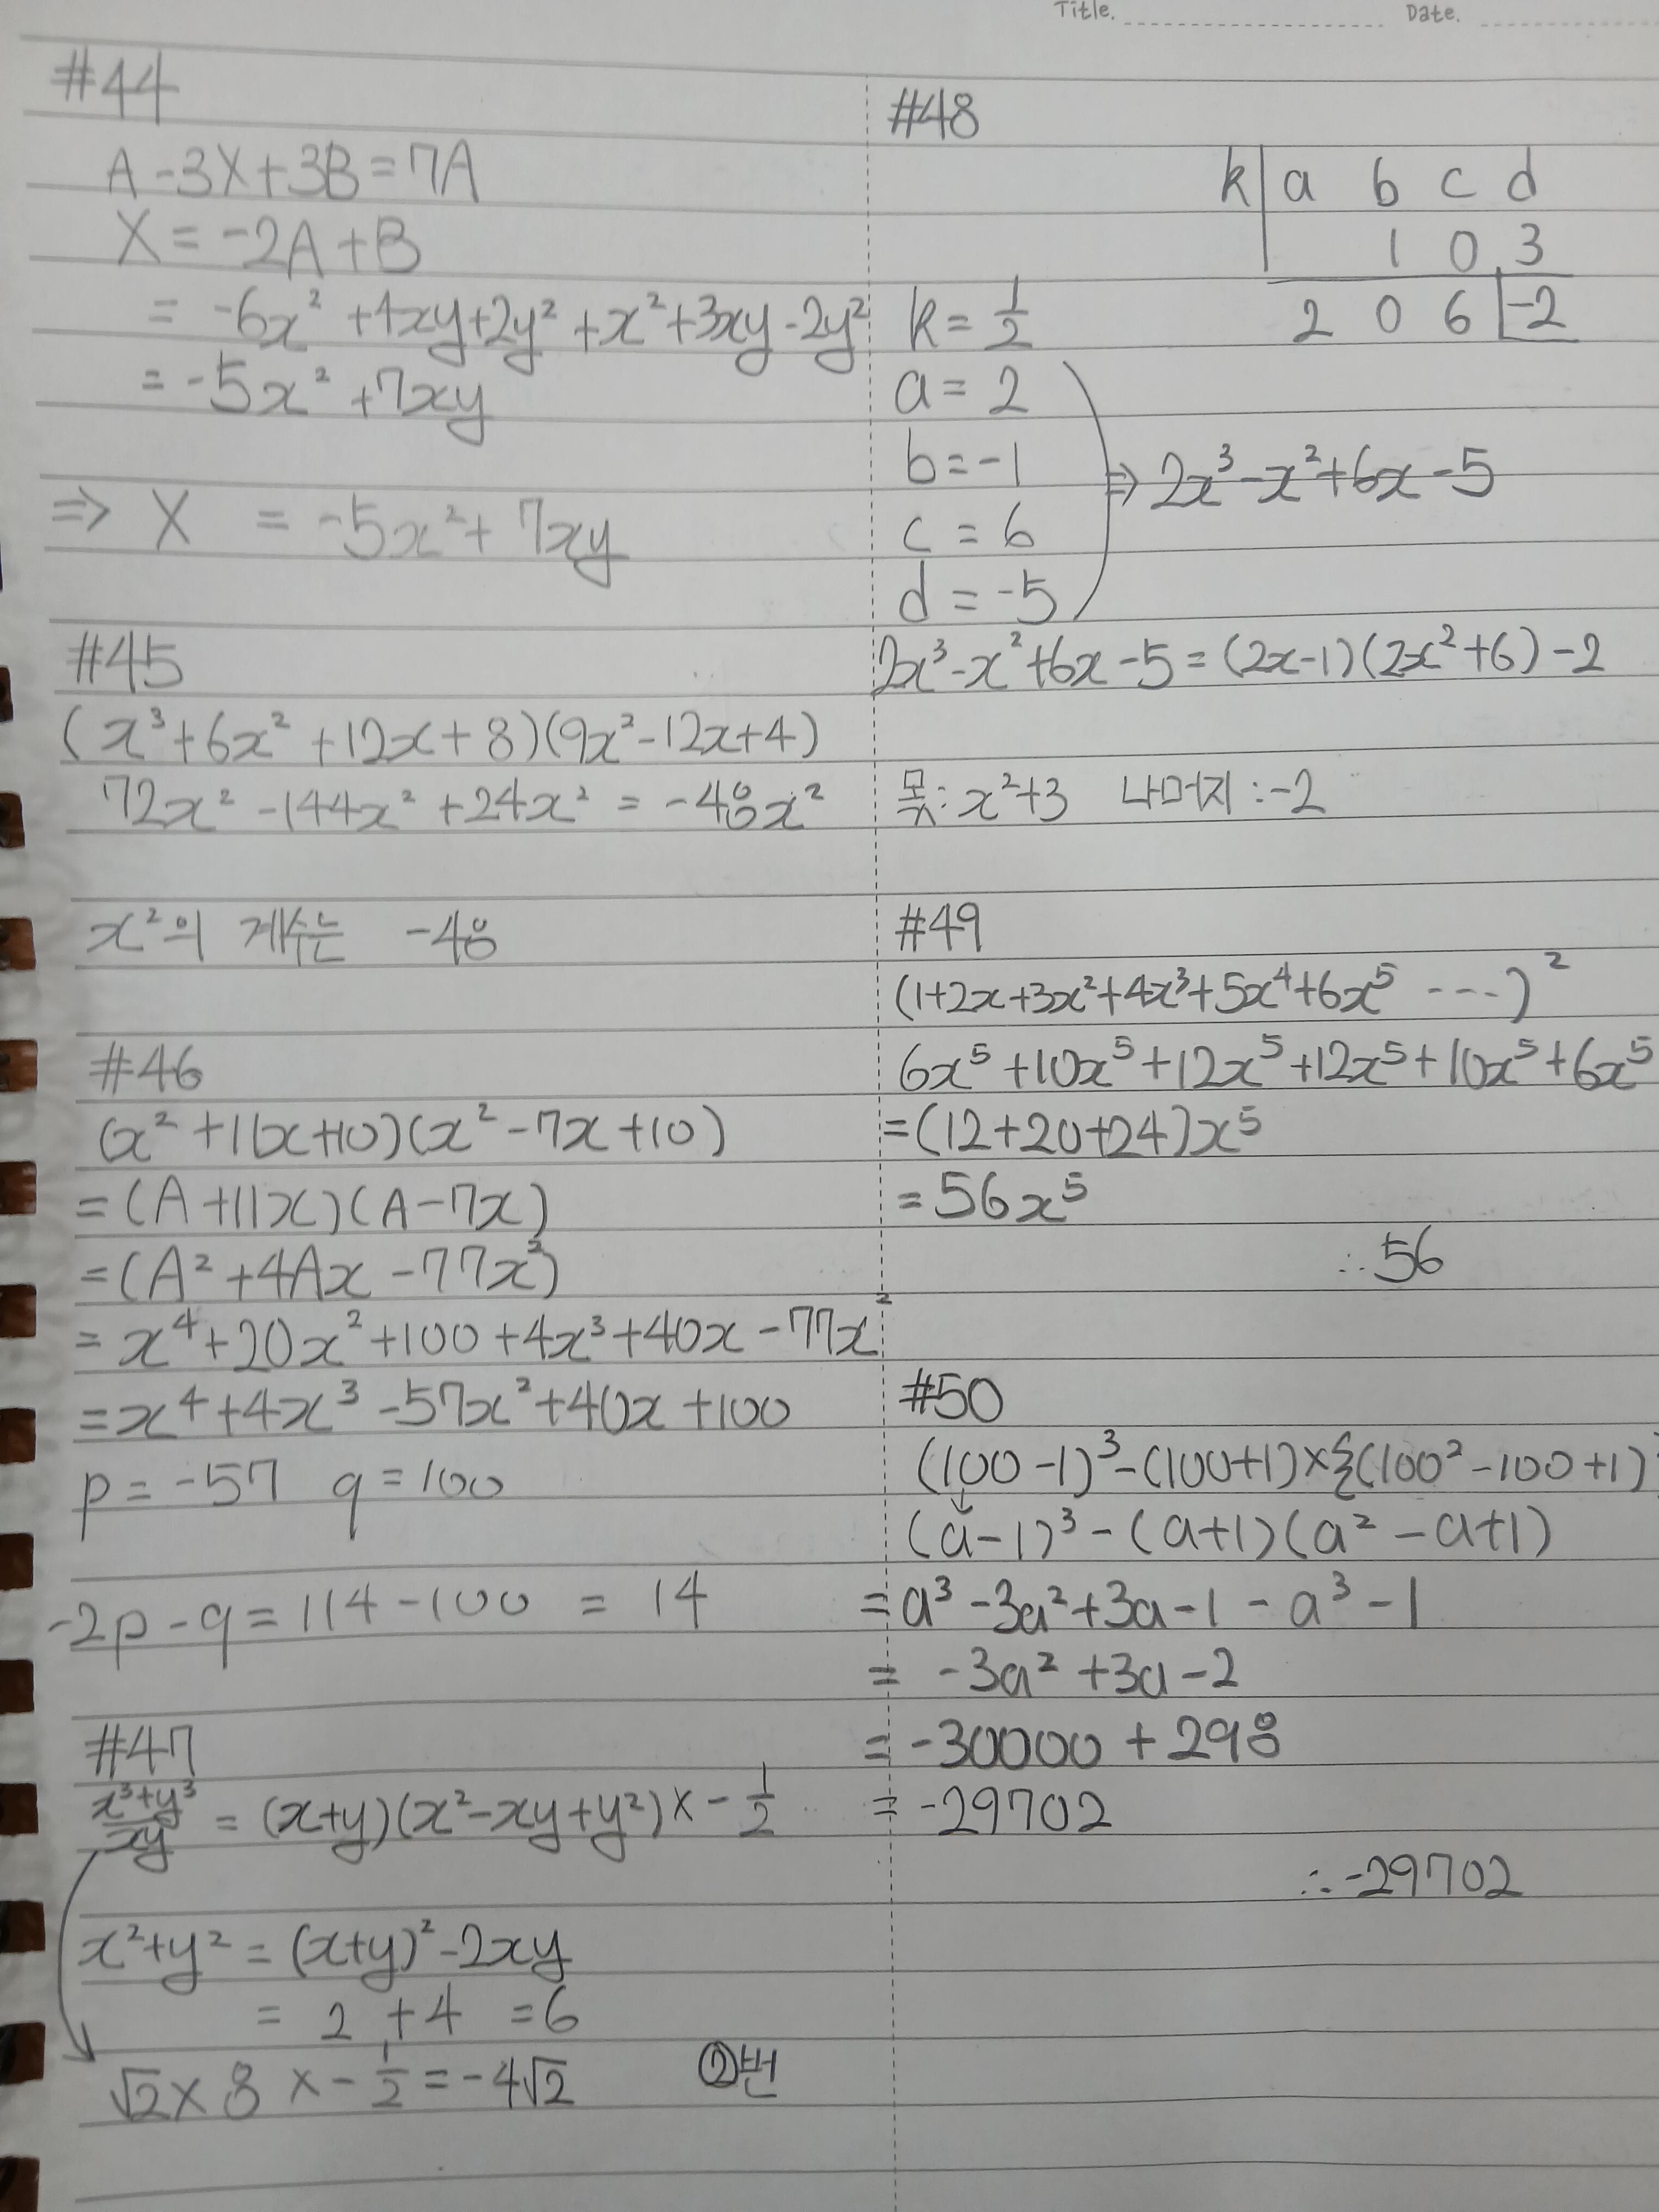 Title.
Date.
#44
A - 3X + 3B = 7A
X = -2A + B
= -6x² + 4xy + 2y² + x² + 3xy - 2y²
= -5x² + 7xy
⇒ X = -5x² + 7xy
#45
(x³ + 6x² + 12x + 8)(9x² - 12x + 4)
72x² - 144x² + 24x² = -48x²
x²의 계수는 -48
#46
(x² + 11x + 10)(x² - 7x + 10)
= (A + 11x)(A - 7x)
= (A² + 4Ax - 77x²)
= x⁴ + 20x² + 100 + 4x³ + 40x - 77x²
= x⁴ + 4x³ - 57x² + 40x + 100
p = -57 q = 100
-2p - q = 114 - 100 = 14
#47
x³+y³/xy = (x+y)(x²-xy+y²) × -1/2
x²+y² = (x+y)² - 2xy
= 2 + 4 = 6
√2 × 8 × -1/2 = -4√2 ②번
#48
k | a b c d
1 0 3
2 0 6 | -2
k = 1/2
a = 2
b = -1
c = 6
d = -5
⇒ 2x³ - x² + 6x - 5
2x³ - x² + 6x - 5 = (2x-1)(2x²+6) - 2
몫: x²+3 나머지: -2
#49
(1+2x+3x²+4x³+5x⁴+6x⁵ ----)²
6x⁵ + 10x⁵ + 12x⁵ + 12x⁵ + 10x⁵ + 6x⁵
= (12+20+24)x⁵
= 56x⁵
∴ 56
#50
(100-1)³ - (100+1) × {(100² - 100 + 1)
(a-1)³ - (a+1)(a² - a + 1)
= a³ - 3a² + 3a - 1 - a³ - 1
= -3a² + 3a - 2
= -30000 + 298
= -29702
∴ -29702